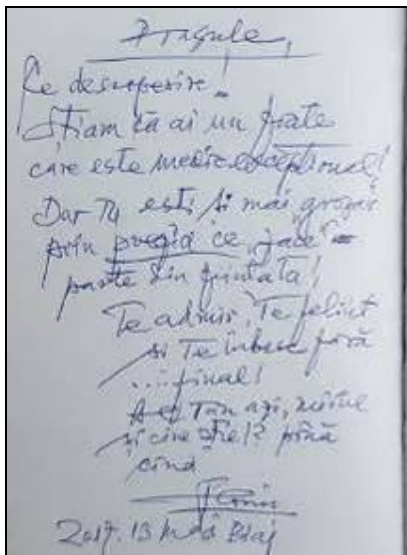 Dragule,
Ce descoperire!
Știam că ai un frate
care este medic excepțional!
Dar Tu ești și mai „grozav"
prin poezia ce „face" -
parte din ființa ta!
Te admir, Te felicit
și Te iubesc fără
....final!
azi, mâine
și cine știe!? până
când
2017. 13 mai Blaj